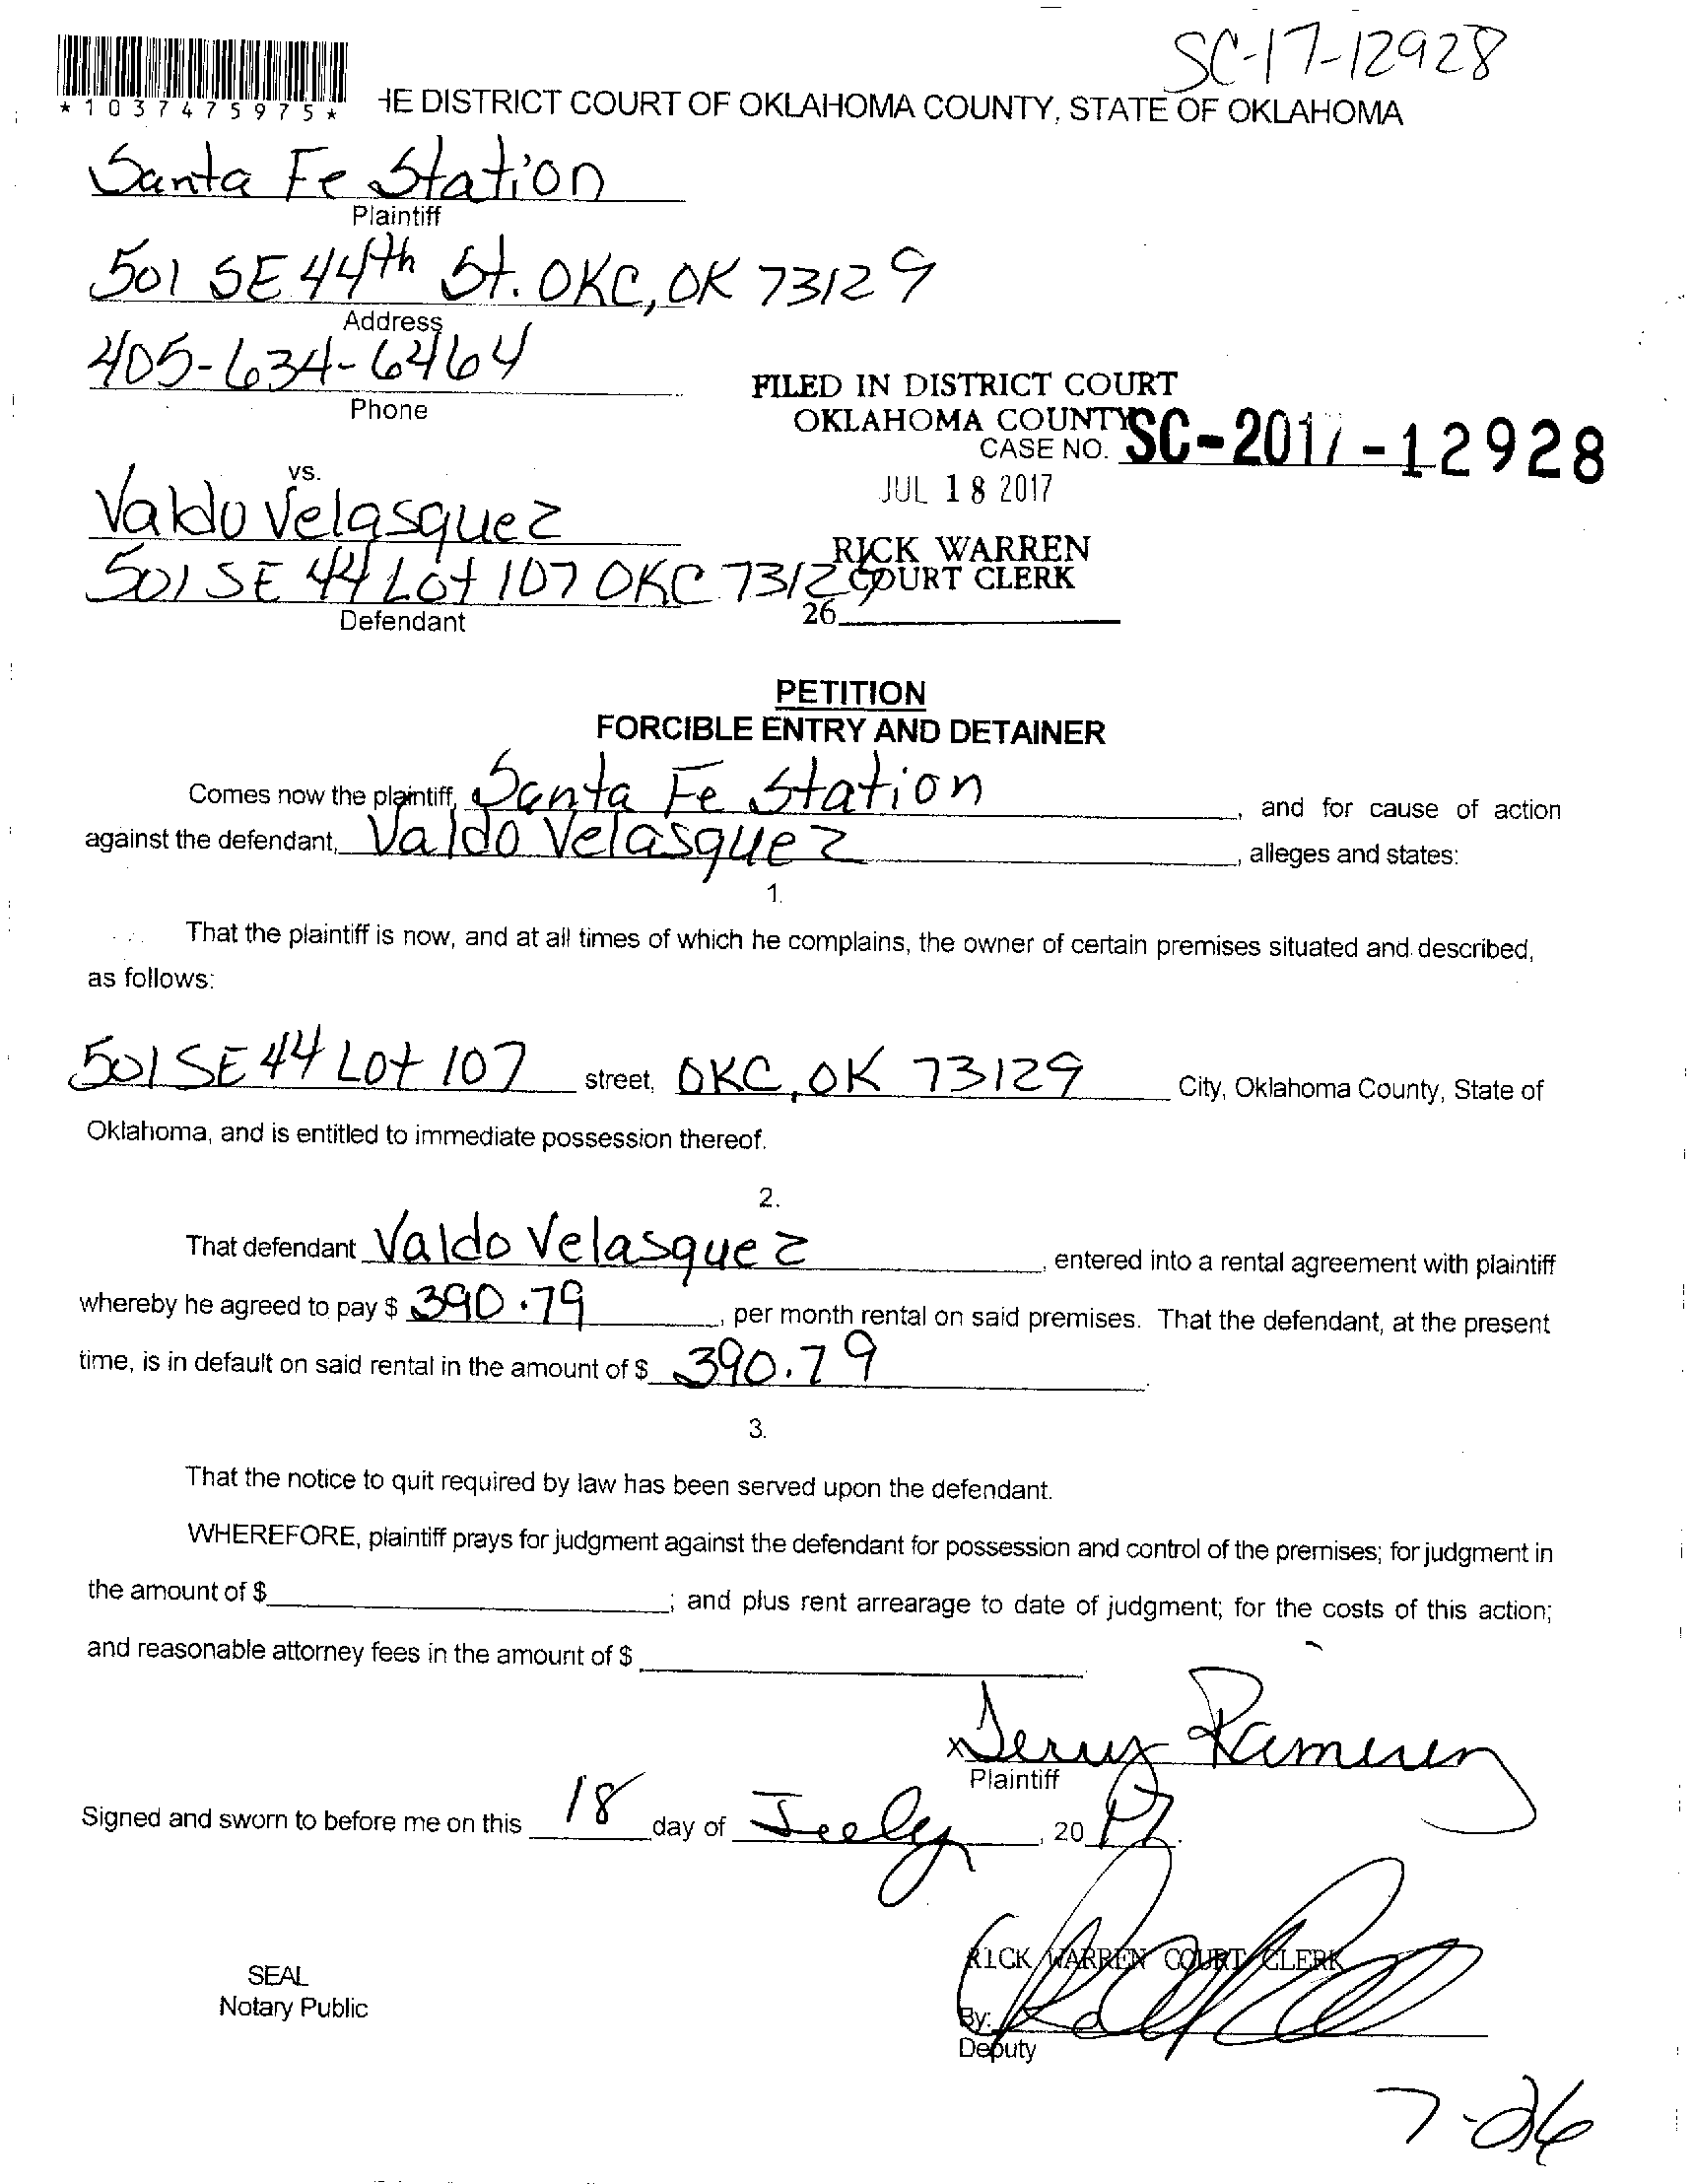 SC-17-12928
*1037475975*
HE DISTRICT COURT OF OKLAHOMA COUNTY, STATE OF OKLAHOMA
Santa Fe Station
Plaintiff
501 SE 44th St. OKC, OK 73129
Address
405-634-6464
Phone
FILED IN DISTRICT COURT
OKLAHOMA COUNTY
CASE NO. SC-2017-12928
JUL 18 2017
vs.
Valdo Velasquez
RICK WARREN
COURT CLERK
501 SE 44 Lot 107 OKC 73129
26
Defendant
PETITION
FORCIBLE ENTRY AND DETAINER
Comes now the plaintiff, Santa Fe Station, and for cause of action
against the defendant, Valdo Velasquez, alleges and states:
1.
That the plaintiff is now, and at all times of which he complains, the owner of certain premises situated and described,
as follows:
501 SE 44 Lot 107 street, OKC, OK 73129 City, Oklahoma County, State of
Oklahoma, and is entitled to immediate possession thereof.
2.
That defendant Valdo Velasquez, entered into a rental agreement with plaintiff
whereby he agreed to pay $ 390.79, per month rental on said premises. That the defendant, at the present
time, is in default on said rental in the amount of $ 390.79
3.
That the notice to quit required by law has been served upon the defendant.
WHEREFORE, plaintiff prays for judgment against the defendant for possession and control of the premises; for judgment in
the amount of $ ; and plus rent arrearage to date of judgment; for the costs of this action;
and reasonable attorney fees in the amount of $
x Ramirez
Plaintiff
Signed and sworn to before me on this 18 day of July, 20 17.
RICK WARREN COURT CLERK
SEAL
Notary Public
By:
Deputy
7-26